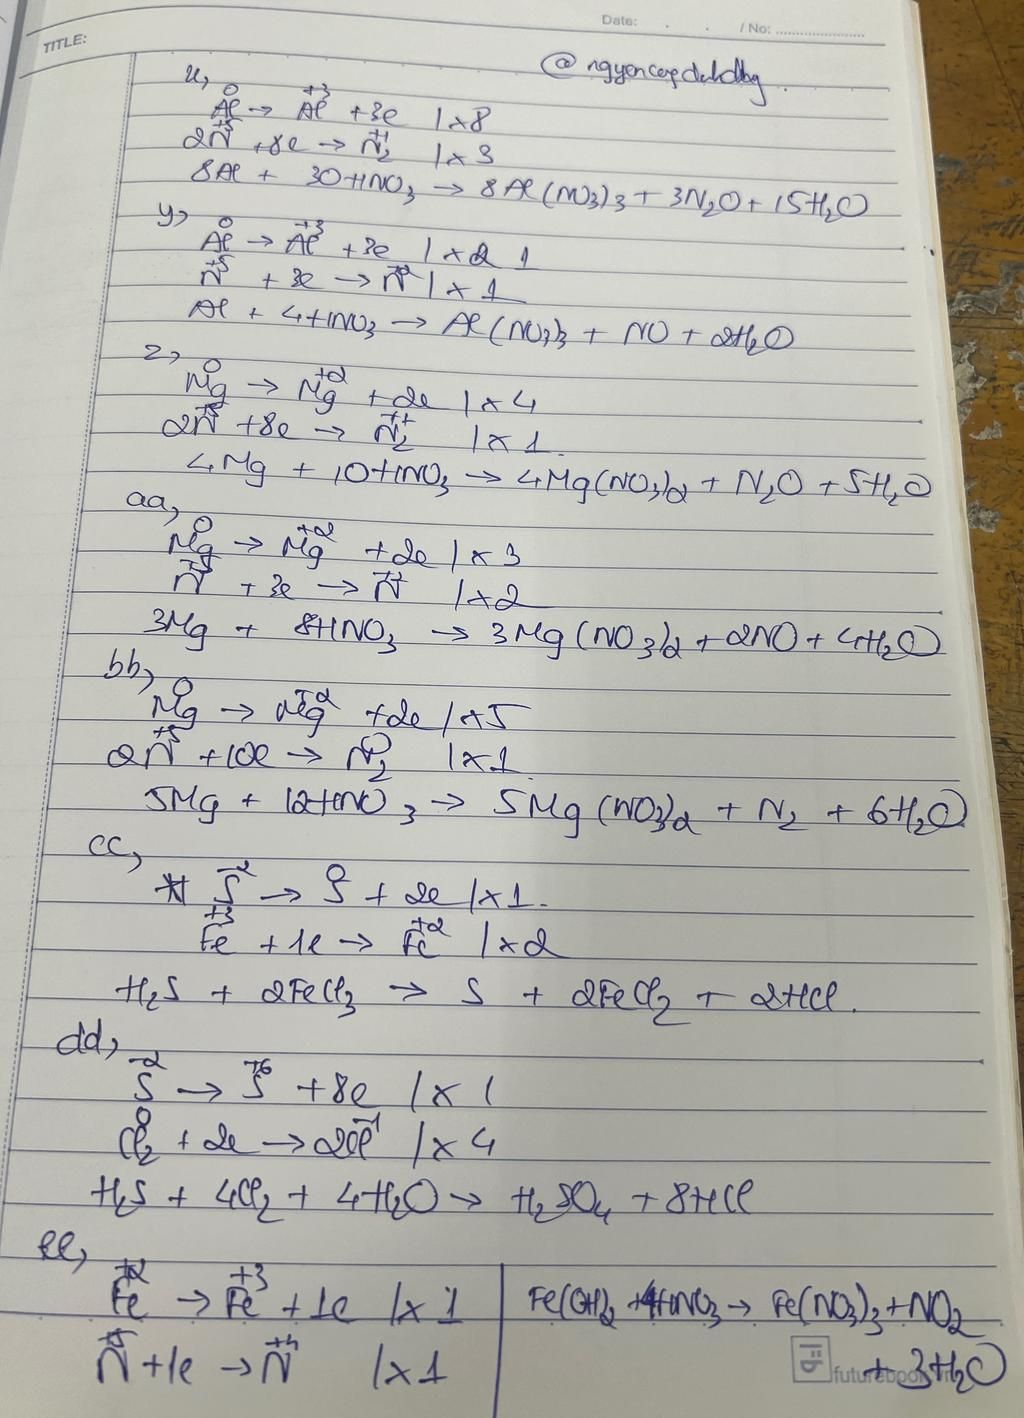 Date: . . / No: ....................
TITLE:
@ngyencopdubdbg
u,
0 +3
Al → Al + 3e | x 8
+5 +1
2N + 8e → N₂ | x 3
8Al + 30HNO₃ → 8Al(NO₃)₃ + 3N₂O + 15H₂O
y,
0 +3
Al → Al + 3e | x 1
+5 +2
N + 3e → N | x 1
Al + 4HNO₃ → Al(NO₃)₃ + NO + 2H₂O
z,
0 +2
Mg → Mg + 2e | x 4
+5 +1
2N + 8e → N₂ | x 1.
4Mg + 10HNO₃ → 4Mg(NO₃)₂ + N₂O + 5H₂O
aa,
0 +2
Mg → Mg + 2e | x 3
+5 +2
N + 3e → N | x 2
3Mg + 8HNO₃ → 3Mg(NO₃)₂ + 2NO + 4H₂O
bb,
0 +2
Mg → Mg + 2e | x 5
+5 0
2N + 10e → N₂ | x 1.
5Mg + 12HNO₃ → 5Mg(NO₃)₂ + N₂ + 6H₂O
cc,
-2 0
S → S + 2e | x 1.
+3 +2
Fe + 1e → Fe | x 2
H₂S + 2FeCl₃ → S + 2FeCl₂ + 2HCl.
dd,
-2 +6
S → S + 8e | x 1
0 -1
Cl₂ + 2e → 2Cl | x 4
H₂S + 4Cl₂ + 4H₂O → H₂SO₄ + 8HCl
ee,
+2 +3
Fe → Fe + 1e | x 1
+5 +4
N + 1e → N | x 1
Fe(OH)₂ + 4HNO₃ → Fe(NO₃)₃ + NO₂
+ 3H₂O